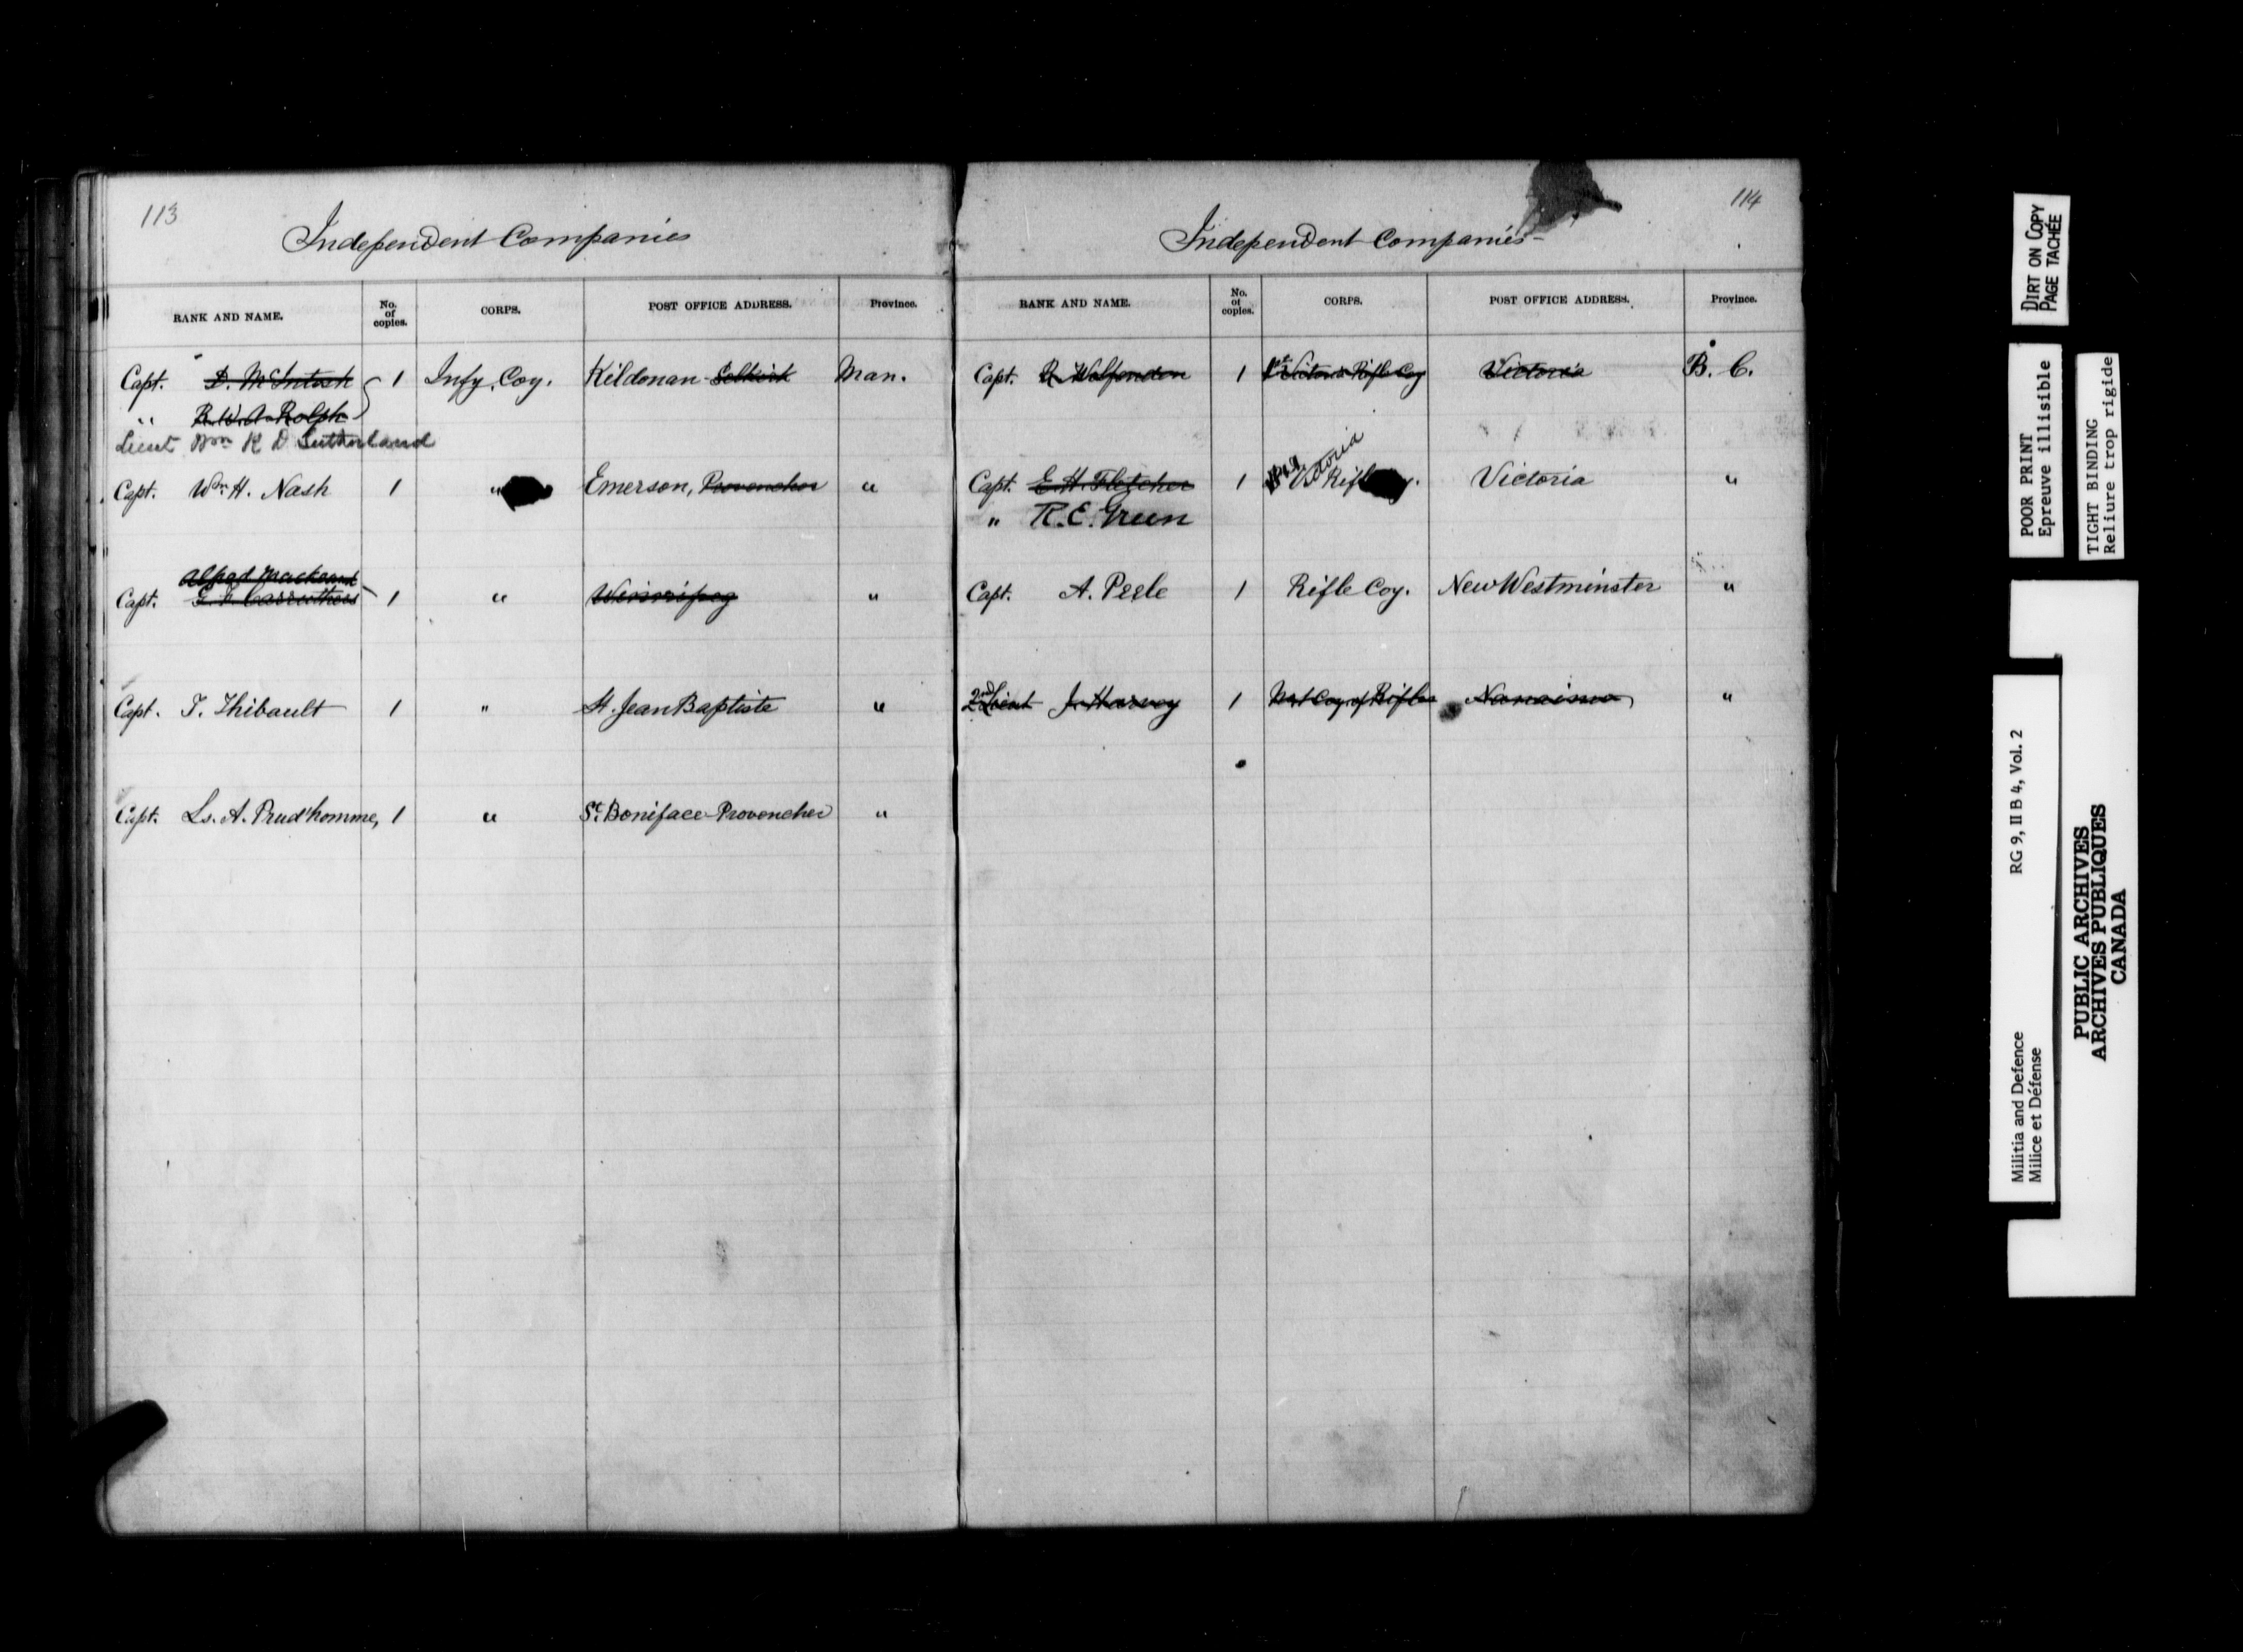 113
Independent Companies
RANK AND NAME. No. of copies. CORPS. POST OFFICE ADDRESS. Province.
Capt. D. McIntosh 1 Infy. Coy. Kildonan Selkirk Man.
" R. W. A. Rolph
Lieut Wm R D Sutherland
Capt. Wm. H. Nash 1 " Emerson, Provencher "
Alfred
Capt. Carruthers 1 " Winnipeg "
Capt. T. Thibault 1 " St. Jean Baptiste "
Capt. Ls. A. Prud'homme, 1 " St. Boniface Provencher "
114
Independent Companies
RANK AND NAME. No. of copies. CORPS. POST OFFICE ADDRESS. Province.
Capt. R. Wolfenden 1 Victoria Rifle Coy Victoria B. C.
Victoria
Capt. E. H. Fletcher 1 Victoria "
" R. E. Green
Capt. A. Peele 1 Rifle Coy. New Westminster "
2nd Lieut J. Harvey 1 Coy. of Rifles Nanaimo "
DIRT ON COPY
PAGE TACHÉE
POOR PRINT
Epreuve illisible
TIGHT BINDING
Reliure trop rigide
Militia and Defence RG 9, II B 4, Vol. 2
Milice et Défense
PUBLIC ARCHIVES
ARCHIVES PUBLIQUES
CANADA